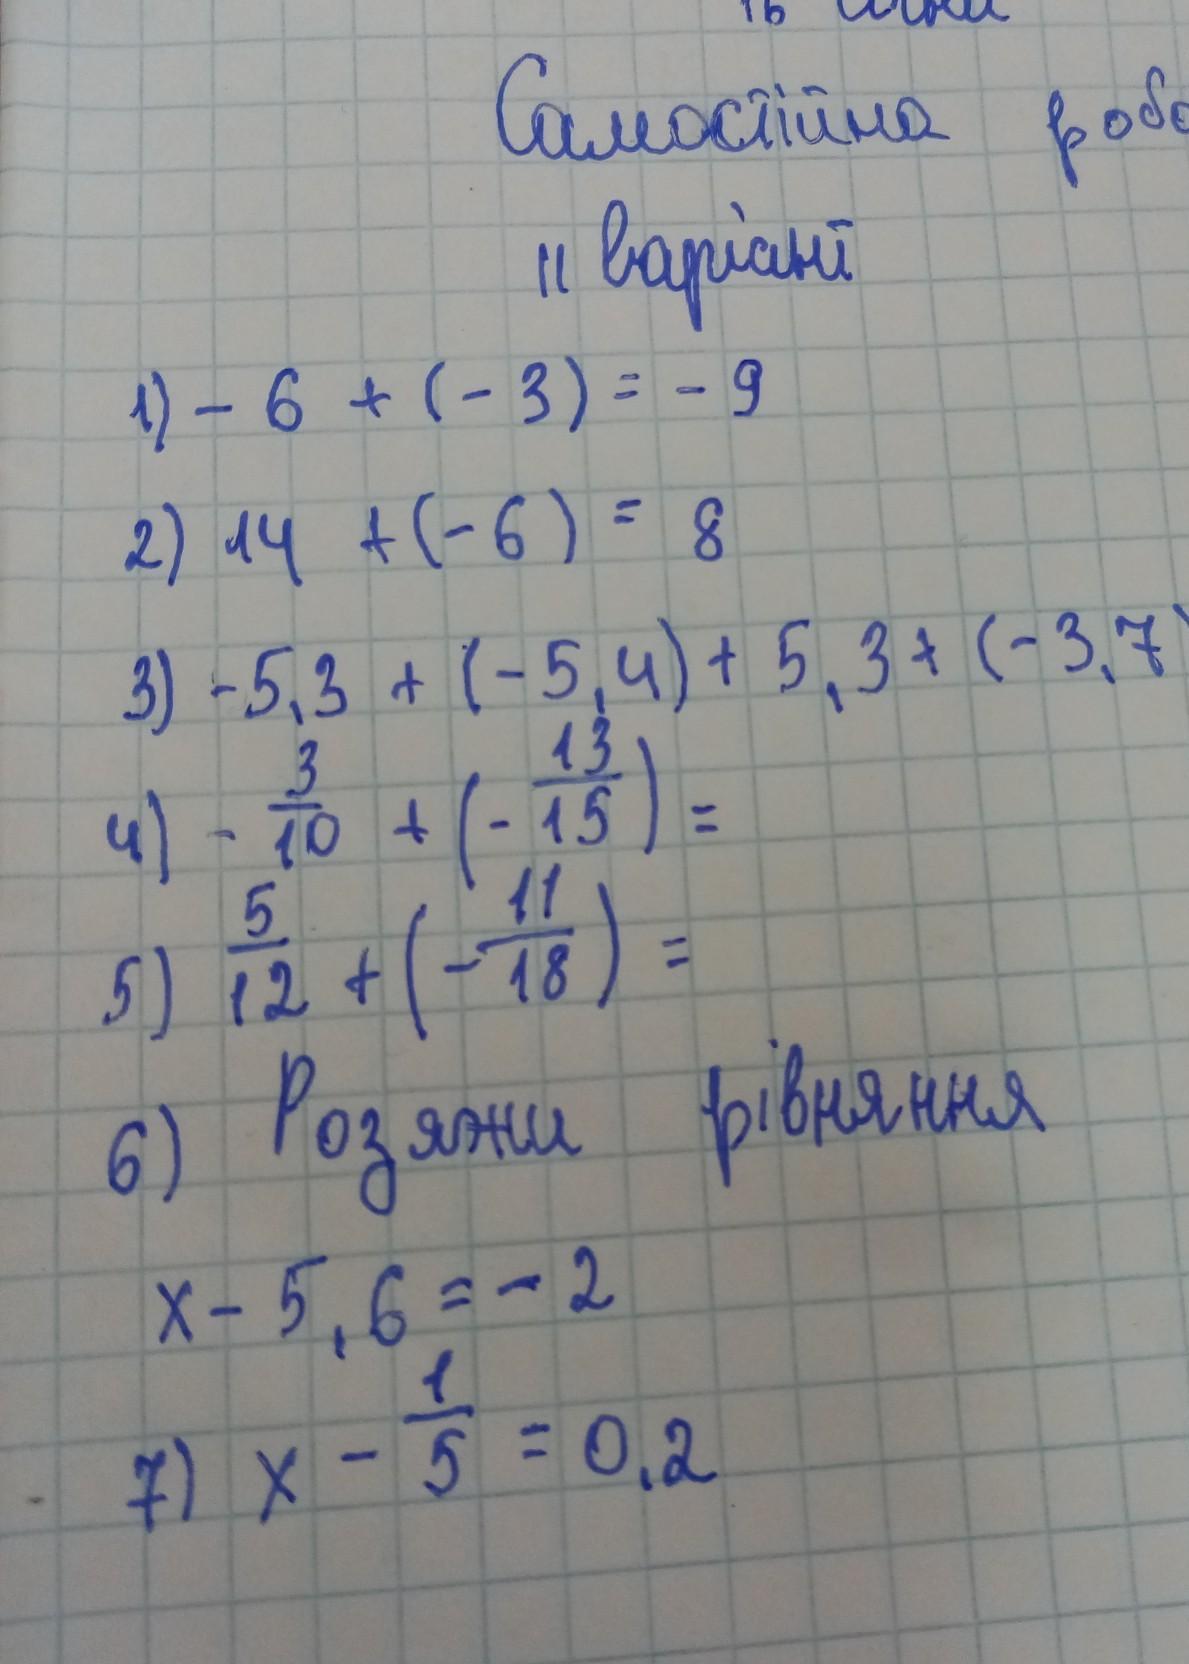 Самостійна
II варіант
1) - 6 + (- 3) = - 9
2) 14 + (- 6) = 8
3) - 5,3 + (- 5,4) + 5,3 + (- 3,7)
4) - 3/10 + (- 13/15) =
5) 5/12 + (- 11/18) =
6) Розяжи рівняння
x - 5,6 = - 2
7) x - 1/5 = 0,2